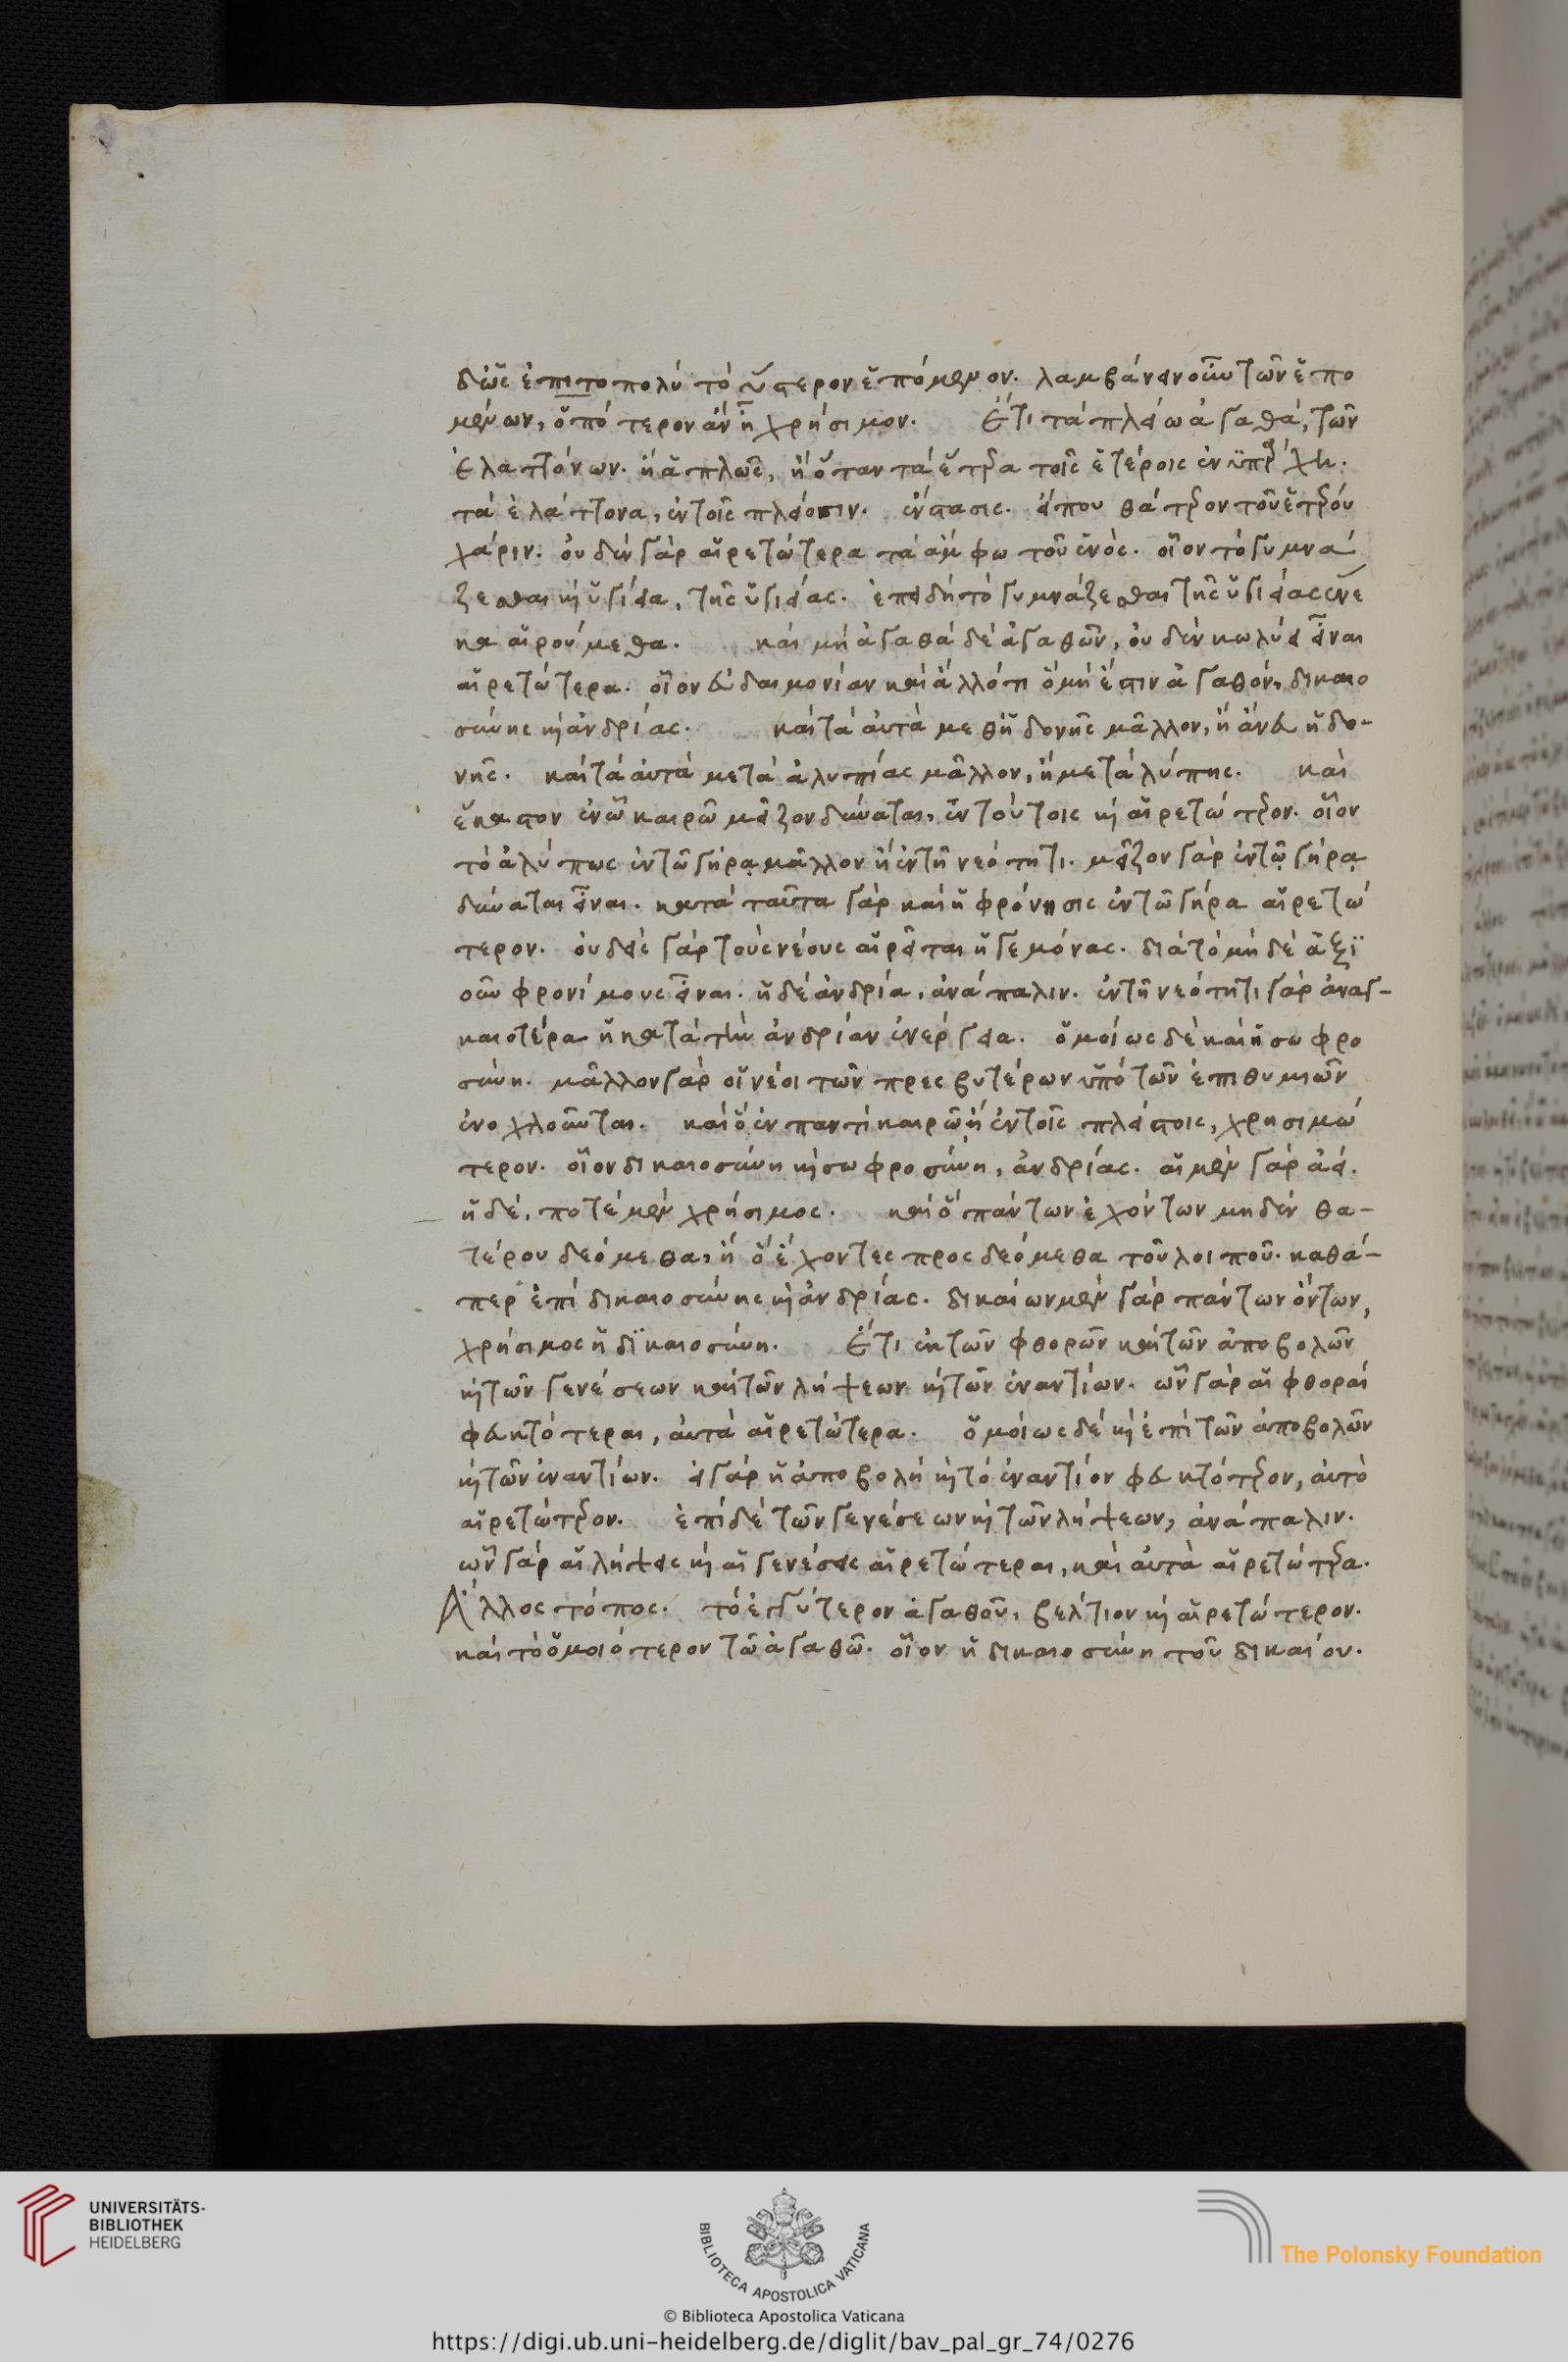 δ' ὡς ἐπιτοπολὺ τὸ ὕστερον ἑπόμενον. λαμβάνειν οὖν τῶν ἑπο
μένων, ὁπότερον ἂν ἦ χρήσιμον. Ἔτι τὰ πλείω ἀγαθὰ, τῶν
ἐλαττόνων. ἢ ἁπλῶς, ἢ ὅταν τὰ ἕτερα τοῖς ἑτέροις ἐνϋπάρχη.
τὰ ἐλάττονα, ἐν τοῖς πλείοσιν. ἔνστασις. εἴ που θάτερον τοῦ ἑτέρου
χάριν. οὐδὲν γὰρ αἱρετώτερα τὰ ἄμφω τοῦ ἑνός. οἷον τὸ γυμνά
ζεσθαι καὶ ὑγίεια, τῆς ὑγιείας. ἐπειδὴ τὸ γυμνάζεσθαι τῆς ὑγιείας ἕνε
κα αἱρούμεθα. καὶ μὴ ἀγαθὰ δὲ ἀγαθῶν, οὐδὲν κωλύει εἶναι
αἱρετώτερα. οἷον εὐδαιμονίαν καὶ ἄλλό τι ὃ μή ἐστιν ἀγαθὸν, δικαιο
σύνης καὶ ἀνδρίας. καὶ τὰ αὐτὰ μεθ' ἡδονῆς μᾶλλον, ἢ ἄνευ ἡδο-
νῆς. καὶ τὰ αὐτὰ μετὰ ἀλυπίας μᾶλλον, ἢ μετὰ λύπης. καὶ
ἕκαστον ἐν ᾧ καιρῷ μεῖζον δύναται, ἐν τούτοις καὶ αἱρετώτερον. οἷον
τὸ ἀλύπως ἐν τῷ γήρᾳ μᾶλλον ἢ ἐν τῇ νεότητι. μεῖζον γὰρ ἐν τῷ γήρᾳ
δύναται εἶναι. κατὰ ταῦτα γὰρ καὶ ἡ φρόνησις ἐν τῷ γήρα αἱρετώ
τερον. οὐδεὶς γὰρ τοὺς νέους αἱρεῖται ἡγεμόνας. διὰ τὸ μὴ δὲ ἀξϊ
οῦν φρονίμους εἶναι. ἡ δὲ ἀνδρία, ἀνάπαλιν. ἐν τῇ νεότητι γὰρ ἀναγ-
καιοτέρα ἡ κατὰ τὴν ἀνδρίαν ἐνέργεια. ὁμοίως δὲ καὶ ἡ σωφρο
σύνη. μᾶλλον γὰρ οἱ νέοι τῶν πρεσβυτέρων ὑπὸ τῶν ἐπιθυμιῶν
ἐνοχλοῦνται. καὶ ὃ ἐν παντὶ καιρῷ ἢ ἐν τοῖς πλείστοις, χρησιμώ
τερον. οἷον δικαιοσύνη καὶ σωφροσύνη, ἀνδρίας. αἱ μὲν γὰρ ἀεί.
ἡ δὲ, ποτὲ μὲν χρήσιμος. καὶ ὃ πάντων ἐχόντων μηδὲν θα-
τέρου δεόμεθα, ἢ ὃ ἔχοντες προςδεόμεθα τοῦ λοιποῦ. καθά-
περ ἐπὶ δικαιοσύνης καὶ ἀνδρίας. δικαίων μὲν γὰρ πάντων ὄντων,
χρήσιμος ἡ δϊκαιοσύνη. Ἔτι ἐκ τῶν φθορῶν καὶ τῶν ἀποβολῶν
καὶ τῶν γενέσεων καὶ τῶν λήψεων καὶ τῶν ἐναντίων. ὧν γὰρ αἱ φθοραὶ
φευκτότεραι, αὐτὰ αἱρετώτερα. ὁμοίως δὲ καὶ ἐπὶ τῶν ἀποβολῶν
καὶ τῶν ἐναντίων. εἰ γὰρ ἡ ἀποβολὴ καὶ τὸ ἐναντίον φευκτότερον, αὐτὸ
αἱρετώτερον. ἐπὶ δὲ τῶν γενέσεων καὶ τῶν λήψεων, ἀνάπαλιν.
ὧν γὰρ αἱ λήψεις καὶ αἱ γενέσεις αἱρετώτεραι, καὶ αὐτὰ αἱρετώτερα.
Ἄλλος τόπος. τὸ ἐγγύτερον ἀγαθοῦ, βέλτιον καὶ αἱρετώτερον.
καὶ τὸ ὁμοιότερον τῷ ἀγαθῷ. οἷον ἡ δικαιοσύνη τοῦ δικαίου.
UNIVERSITÄTS-
BIBLIOTHEK
HEIDELBERG
BIBLIOTECA APOSTOLICA VATICANA
The Polonsky Foundation
© Biblioteca Apostolica Vaticana
https://digi.ub.uni-heidelberg.de/diglit/bav_pal_gr_74/0276